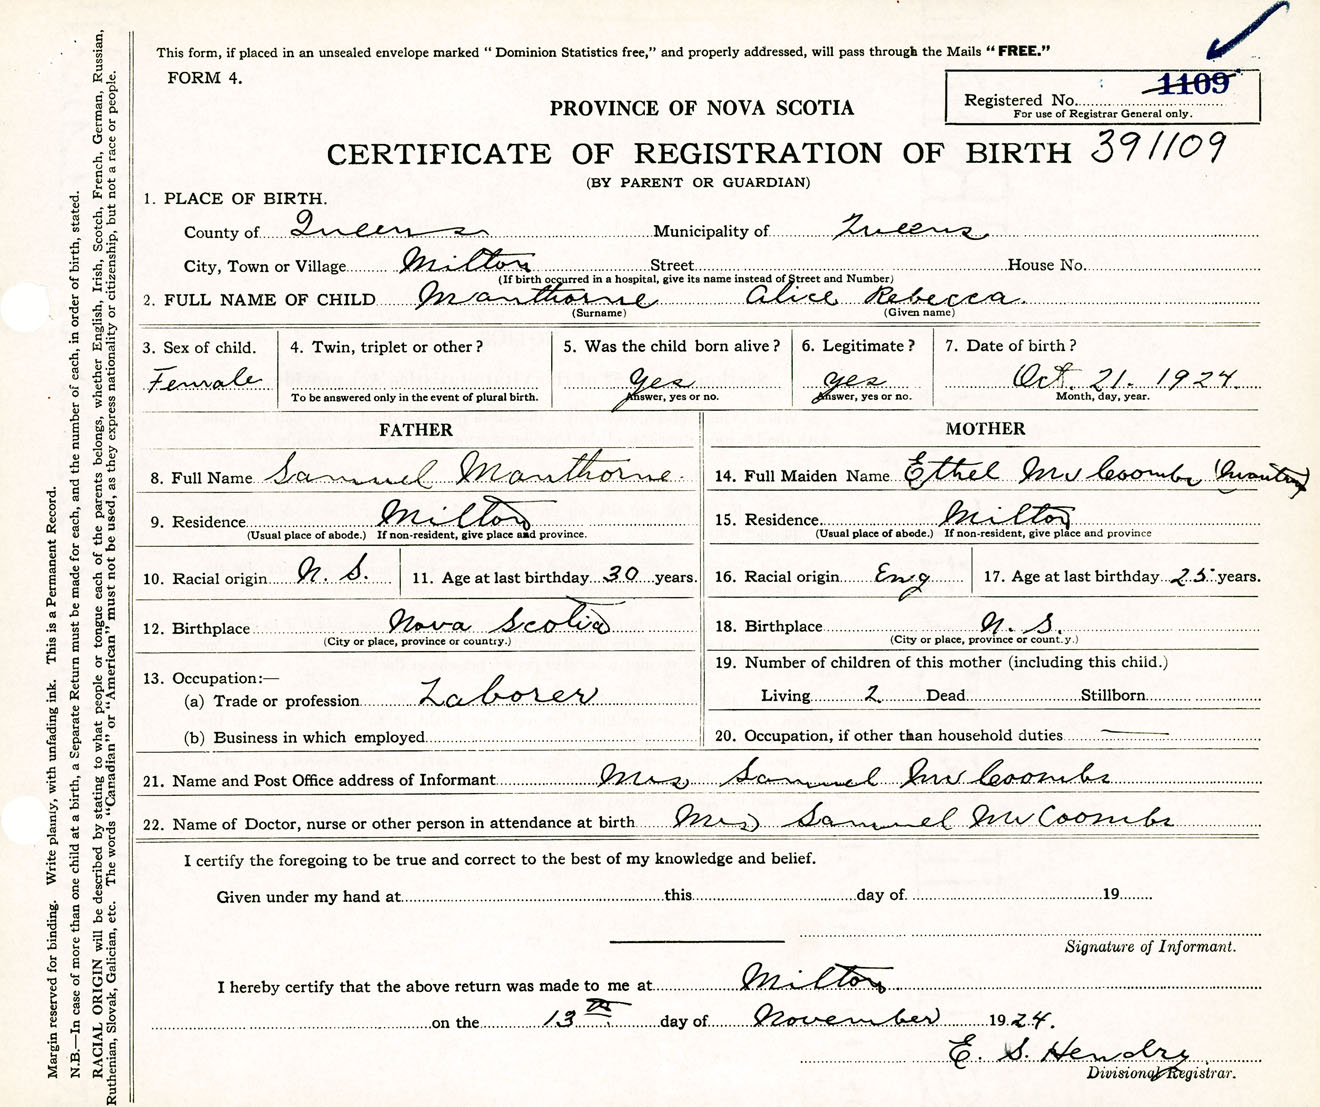 This form, if placed in an unsealed envelope marked "Dominion Statistics free," and properly addressed, will pass through the Mails "FREE."
FORM 4.
1109
Registered No.
For use of Registrar General only.
PROVINCE OF NOVA SCOTIA
CERTIFICATE OF REGISTRATION OF BIRTH 391109
(BY PARENT OR GUARDIAN)
1. PLACE OF BIRTH.
County of Queens Municipality of Queens
City, Town or Village Milton Street House No.
(If birth occurred in a hospital, give its name instead of Street and Number)
2. FULL NAME OF CHILD Manthorne Alice Rebecca.
(Surname) (Given name)
3. Sex of child. 4. Twin, triplet or other? 5. Was the child born alive? 6. Legitimate? 7. Date of birth?
Female Yes Yes Oct. 21. 1924.
To be answered only in the event of plural birth. Answer, yes or no. Answer, yes or no. Month, day, year.
FATHER MOTHER
8. Full Name Samuel Manthorne. 14. Full Maiden Name Ethel McCoombs
9. Residence Milton 15. Residence Milton
(Usual place of abode.) If non-resident, give place and province. (Usual place of abode.) If non-resident, give place and province
10. Racial origin N. S. 11. Age at last birthday 30 years. 16. Racial origin Eng 17. Age at last birthday 25 years.
12. Birthplace Nova Scotia 18. Birthplace N. S.
(City or place, province or country.) (City or place, province or country.)
13. Occupation:— 19. Number of children of this mother (including this child.)
(a) Trade or profession Laborer Living 2 Dead Stillborn
(b) Business in which employed 20. Occupation, if other than household duties —
21. Name and Post Office address of Informant Mrs Samuel McCoombs
22. Name of Doctor, nurse or other person in attendance at birth Mrs Samuel McCoombs
I certify the foregoing to be true and correct to the best of my knowledge and belief.
Given under my hand at this day of 19
Signature of Informant.
I hereby certify that the above return was made to me at Milton
on the 13th day of November 1924.
E. S. Hendry
Divisional Registrar.
Margin reserved for binding. Write plainly, with unfading ink. This is a Permanent Record.
N.B.—In case of more than one child at a birth, a Separate Return must be made for each, and the number of each, in order of birth, stated.
RACIAL ORIGIN will be described by stating to what people or tongue each of the parents belongs, whether English, Irish, Scotch, French, German, Russian,
Ruthenian, Slovak, Galician, etc. The words "Canadian" or "American" must not be used, as they express nationality or citizenship, but not a race or people.